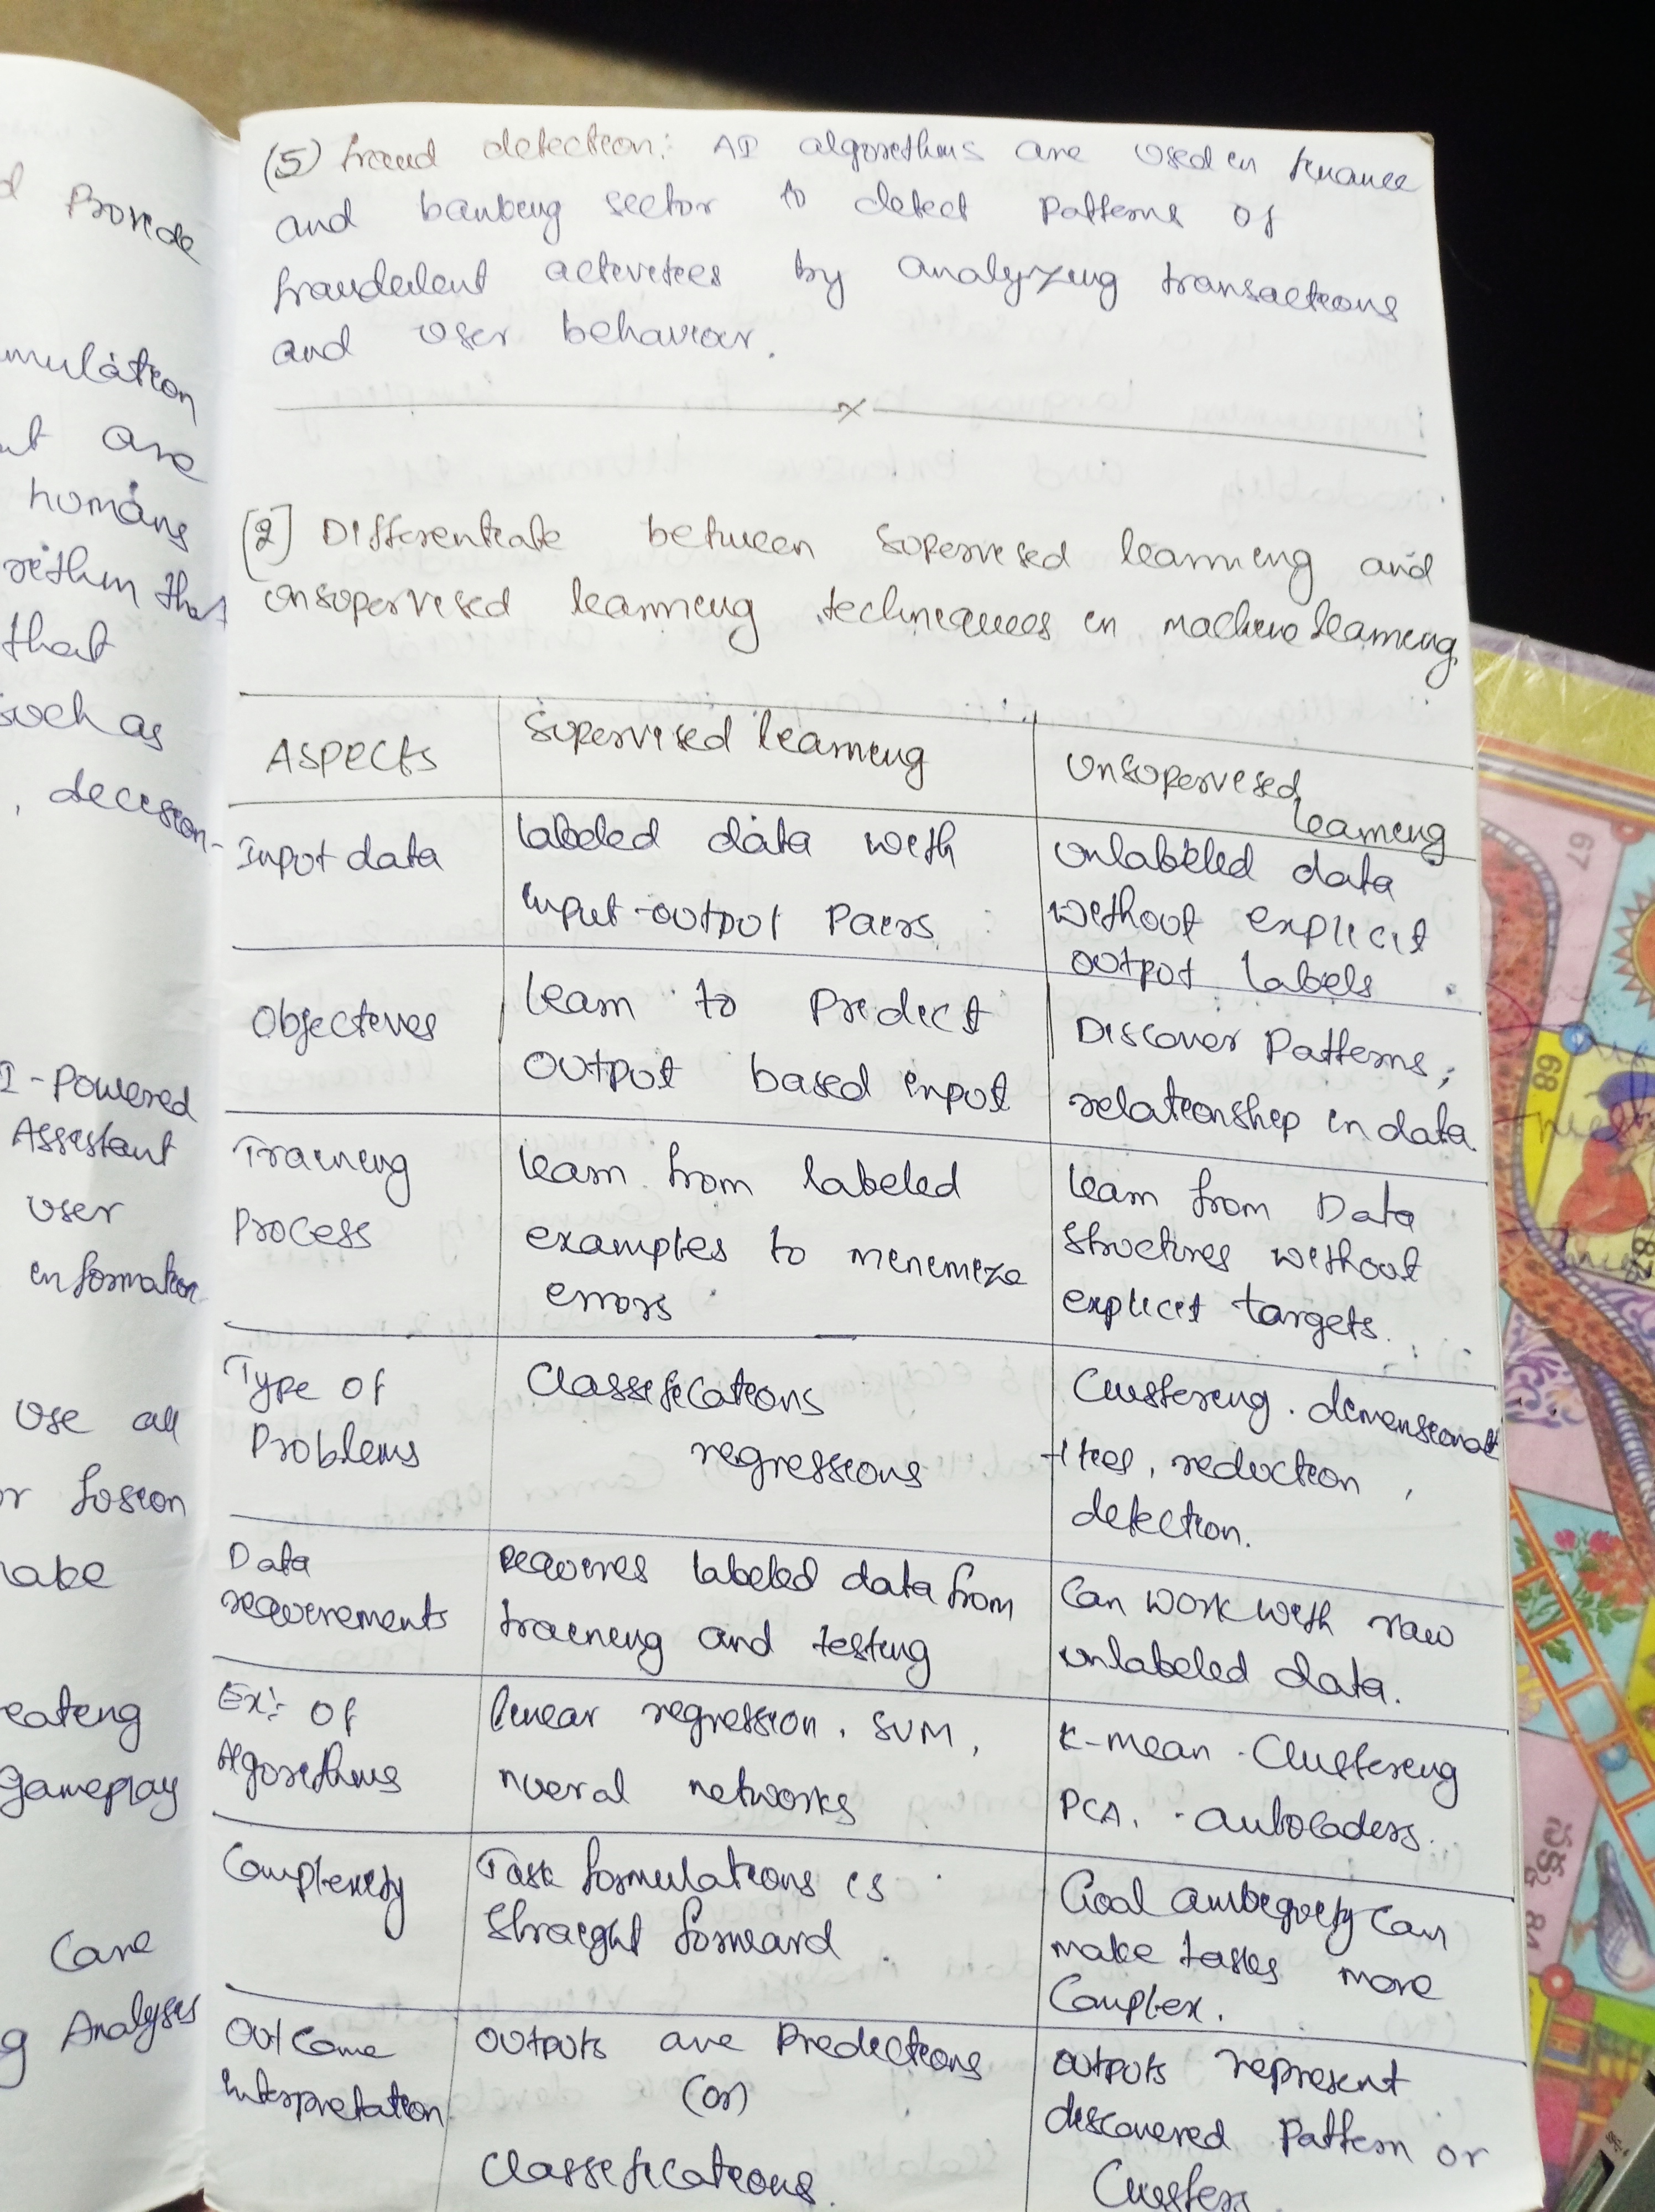 d Provide
mulation
ut are
humans
rithm that
that
such as
, decision-
I-Powered
Assistant
user
information
use all
or fusion
make
eating
gameplay
Care
g Analyses
(5) fraud detection: AI algorithms are used in finance
and banking sector to detect patterns of
fraudulent activities by analyzing transactions
and user behaviour.
x
[2] Differentiate between supervised learning and
unsupervised learning techniques in machine learning
ASPECTS
Supervised learning
unsupervised
learning
Input data
labeled data with
input-output Pairs
unlabeled data
without explicit
output labels.
Objectives
learn to Predict
output based input
Discover Patterns,
relationship in data
Training
Process
learn from labeled
examples to minimize
errors
learn from Data
structures without
explicit targets.
Type of
Problems
Classifications
regressions
Clustering. dimensional
ities, reduction,
detection.
Data
requirements
requires labeled data from
training and testing
Can work with raw
unlabeled data.
Ex:- of
Algorithms
linear regression, SVM,
nueral networks
K-mean - Clustering
PCA, autocaders.
Complexity
Task formulations is
straight forward.
Goal ambiguity can
make tasks more
Complex.
Outcome
interpretation
outputs are Predictions
(or)
Classifications.
outputs represent
discovered pattern or
Clusters.
67
68
87
84